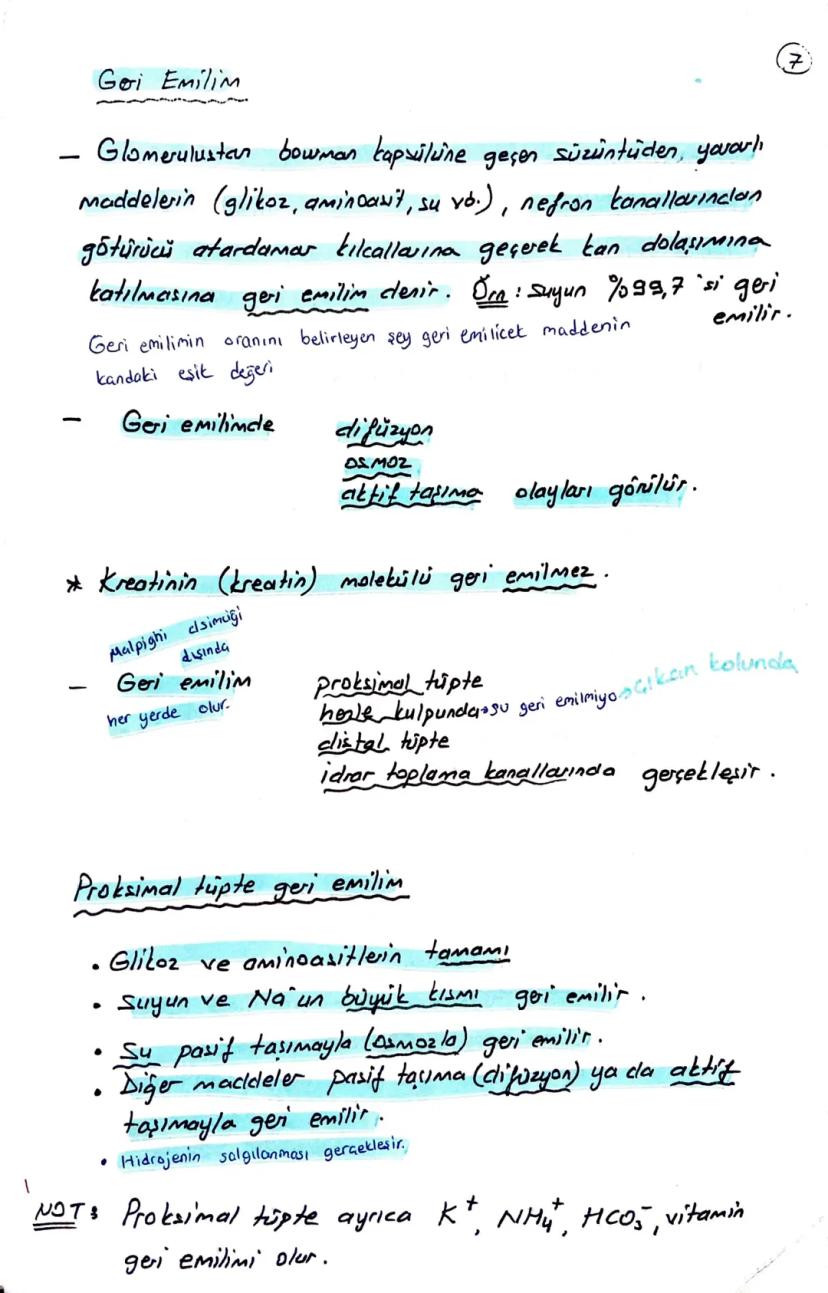 7
Geri Emilim
– Glomerulustan bowman kapsülüne geçen süzüntüden, yararlı
maddelerin (glikoz, aminoasit, su vb.), nefron kanallarından
götürücü atardamar kılcallarına geçerek kan dolaşımına
katılmasına geri emilim denir. Örn: Suyun %99,7'si geri
emilir.
Geri emilimin oranını belirleyen şey geri emilicek maddenin
kandaki eşik değeri
– Geri emilimde difüzyon
osmoz
aktif taşıma olayları görülür.
* Kreatinin (kreatin) molekülü geri emilmez.
Malpighi cisimciği
dışında
– Geri emilim proksimal tüpte
her yerde olur. henle kulpunda → su geri emilmiyo → çıkan kolunda
distal tüpte
idrar toplama kanallarında gerçekleşir.
Proksimal tüpte geri emilim
• Glikoz ve aminoasitlerin tamamı
• Suyun ve Na'un büyük kısmı geri emilir.
• Su pasif taşımayla (osmozla) geri emilir.
• Diğer maddeler pasif taşıma (difüzyon) ya da aktif
taşımayla geri emilir.
• Hidrojenin salgılanması gerçekleşir.
NOT: Proksimal tüpte ayrıca K⁺, NH₄⁺, HCO₃⁻, vitamin
geri emilimi olur.